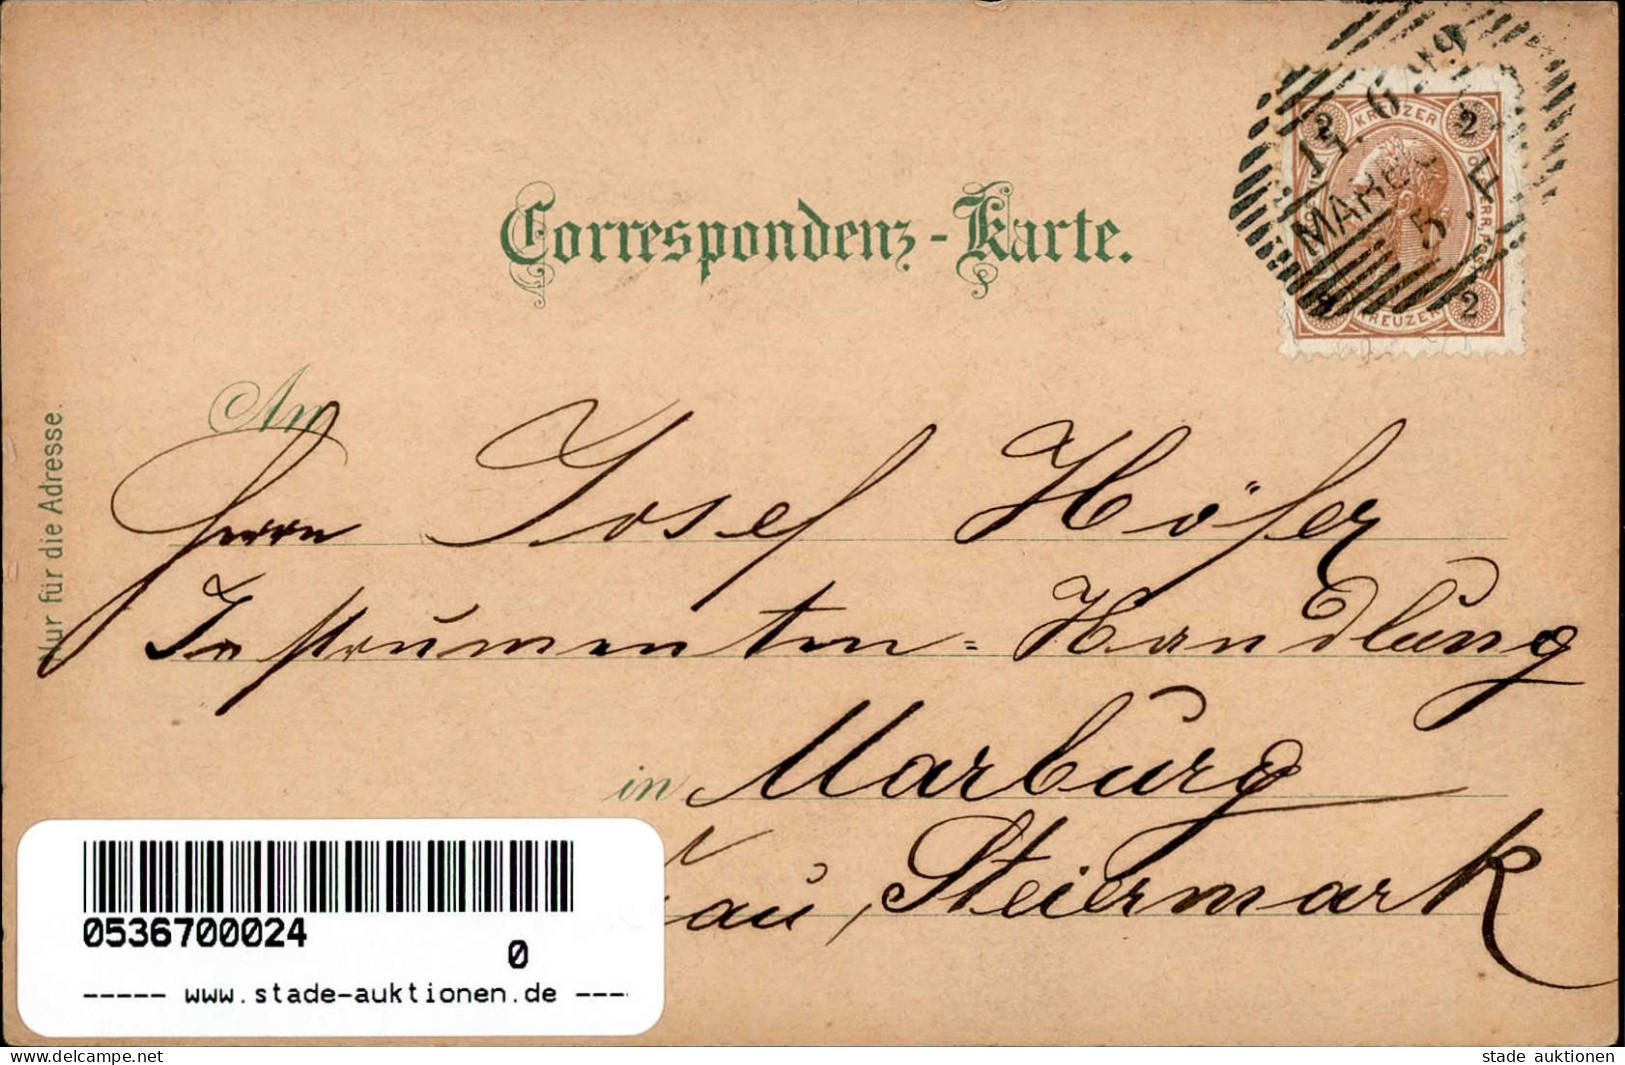 Correspondenz-Karte.
2 KREUZER 2
KREUZER 2
Nur für die Adresse.
An
Herrn Josef Höfer
Instrumenten = Handlung
in Marburg
au, Steiermark
0536700024
0
----- www.stade-auktionen.de ----
www.delcampe.net
stade auktionen